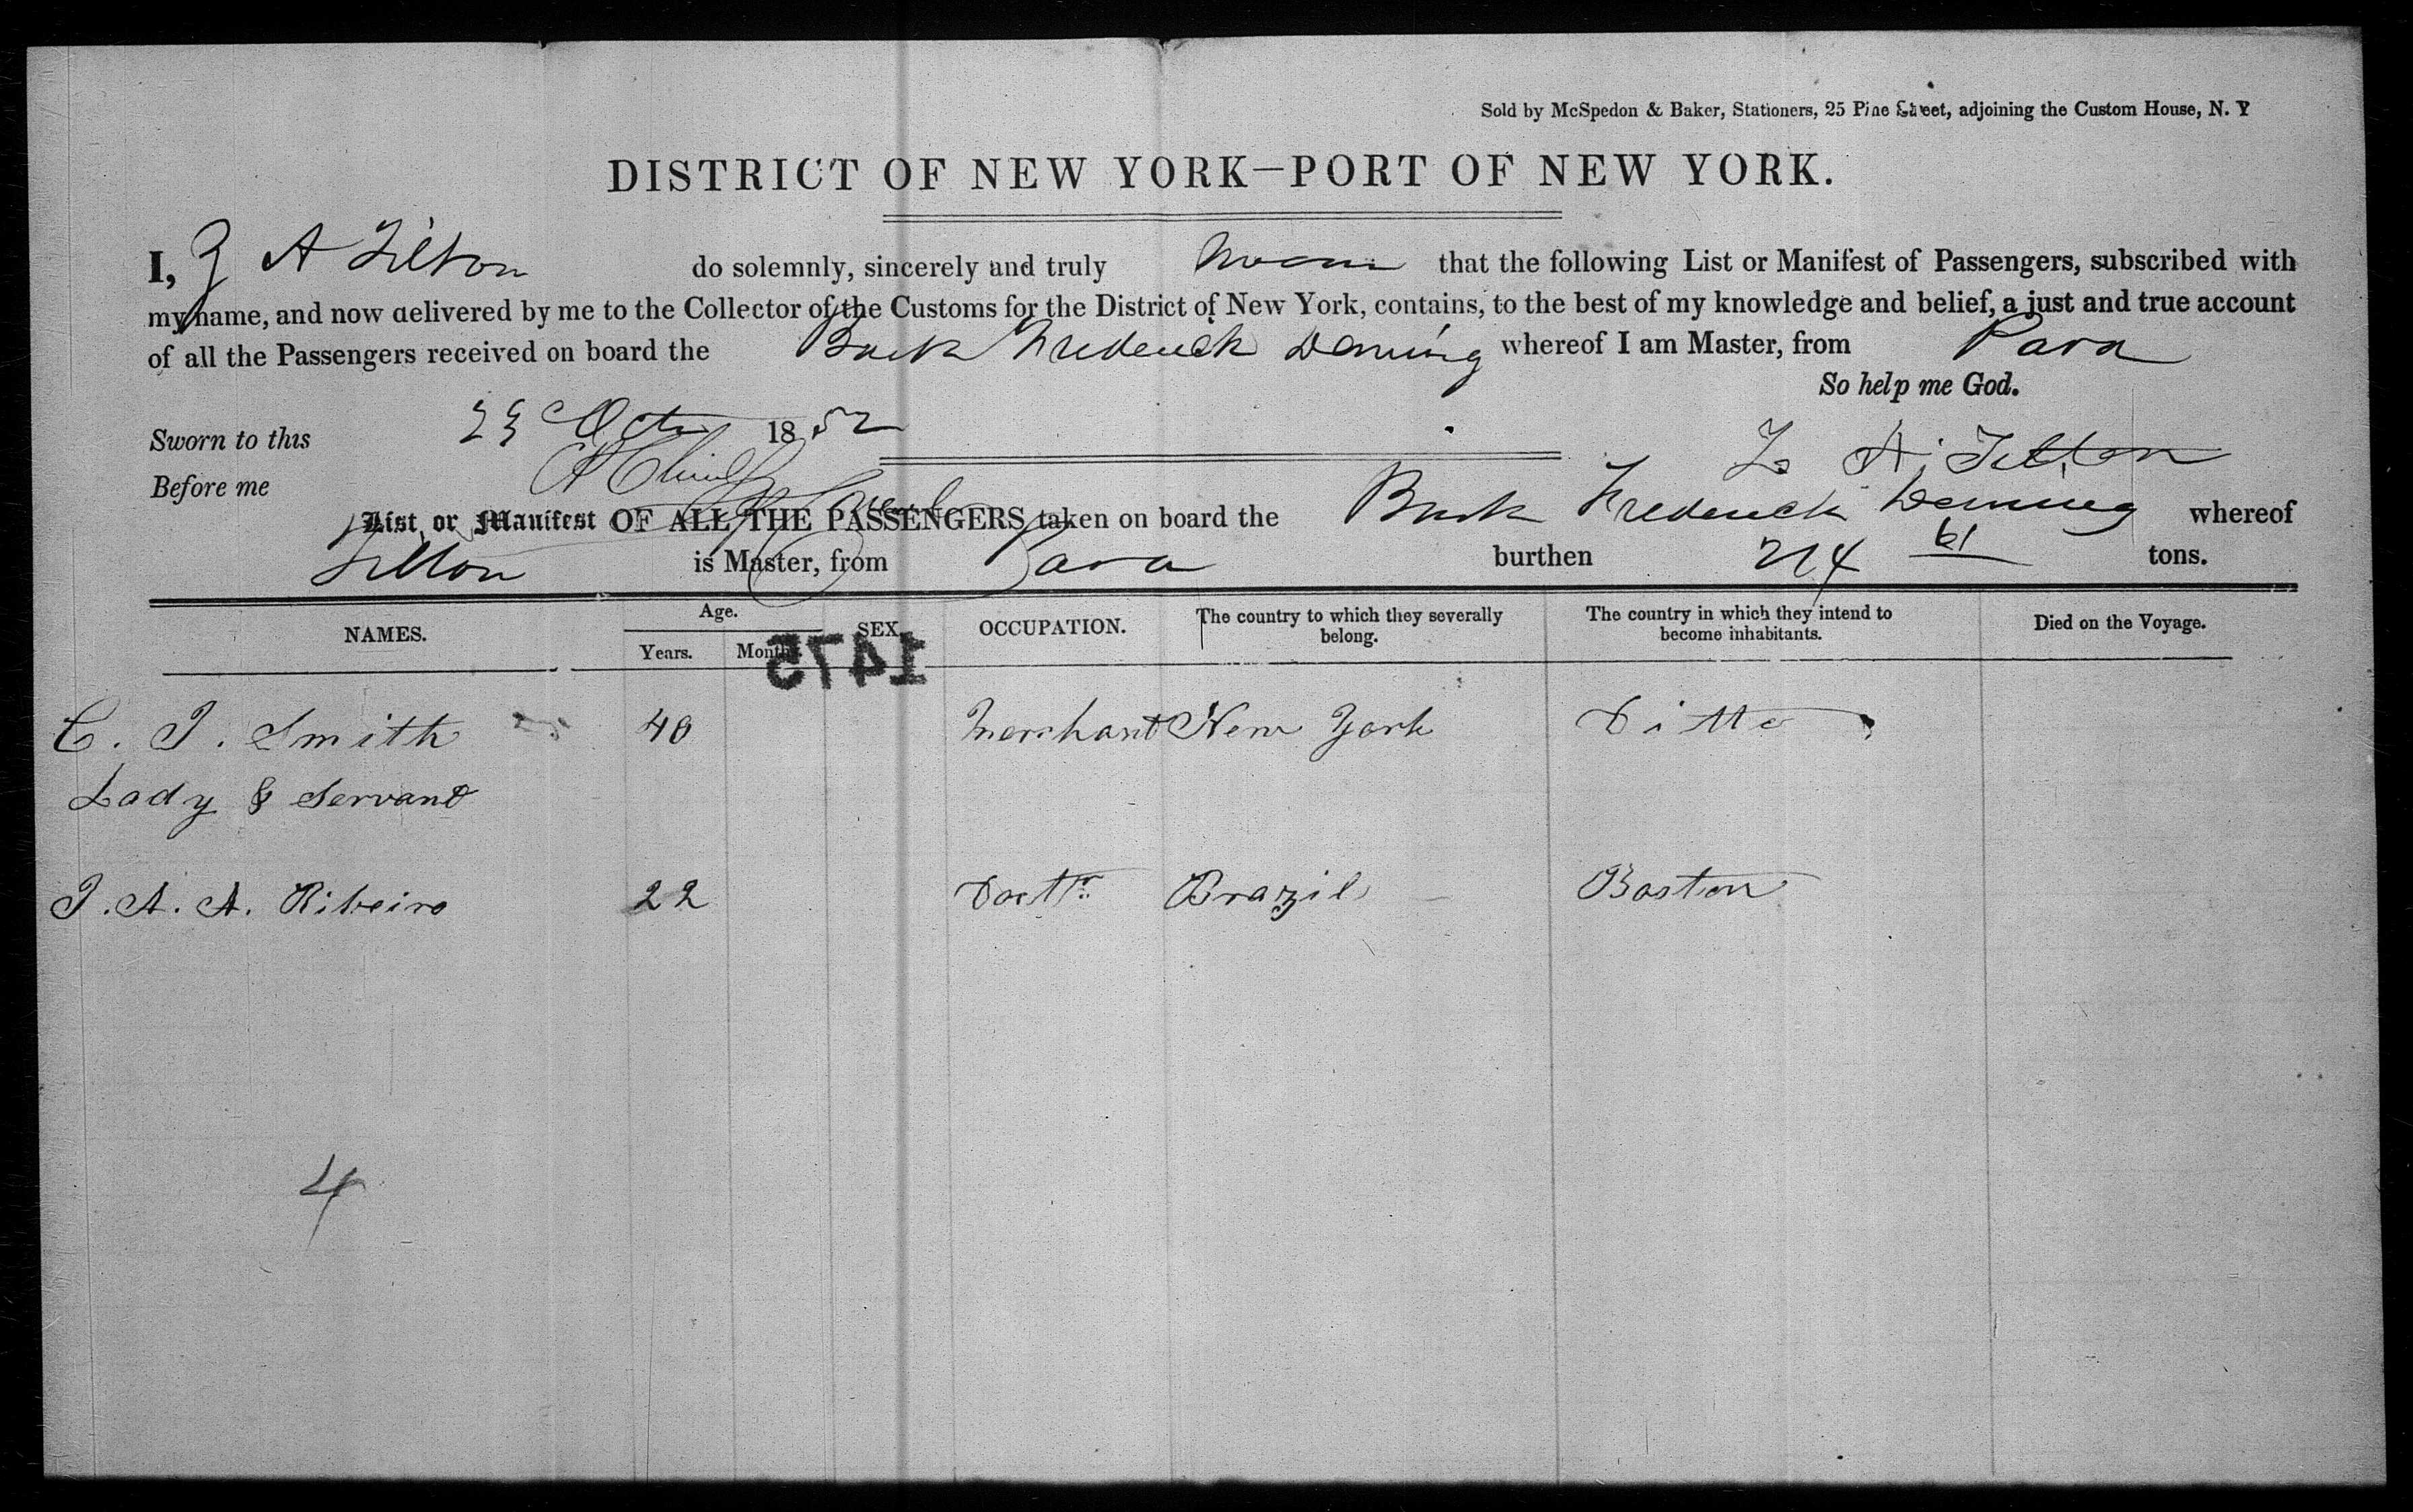 Sold by McSpedon & Baker, Stationers, 25 Pine Street, adjoining the Custom House, N. Y
DISTRICT OF NEW YORK—PORT OF NEW YORK.
I, Z A Tilton do solemnly, sincerely and truly swear that the following List or Manifest of Passengers, subscribed with
my name, and now delivered by me to the Collector of the Customs for the District of New York, contains, to the best of my knowledge and belief, a just and true account
of all the Passengers received on board the Bark Frederick Deming whereof I am Master, from Para
So help me God.
Sworn to this 23 Octr 1852
Z A Tilton
Before me
List or Manifest OF ALL THE PASSENGERS taken on board the Bark Frederick Deming whereof
Tilton is Master, from Para burthen 214 61 tons.
NAMES. Age. Years. Months. SEX. OCCUPATION. The country to which they severally belong. The country in which they intend to become inhabitants. Died on the Voyage.
1475
C. J. Smith 40 Merchant New York Ditto
Lady & Servant
J. A. A. Ribeiro 22 Doctr. Brazil Boston
4